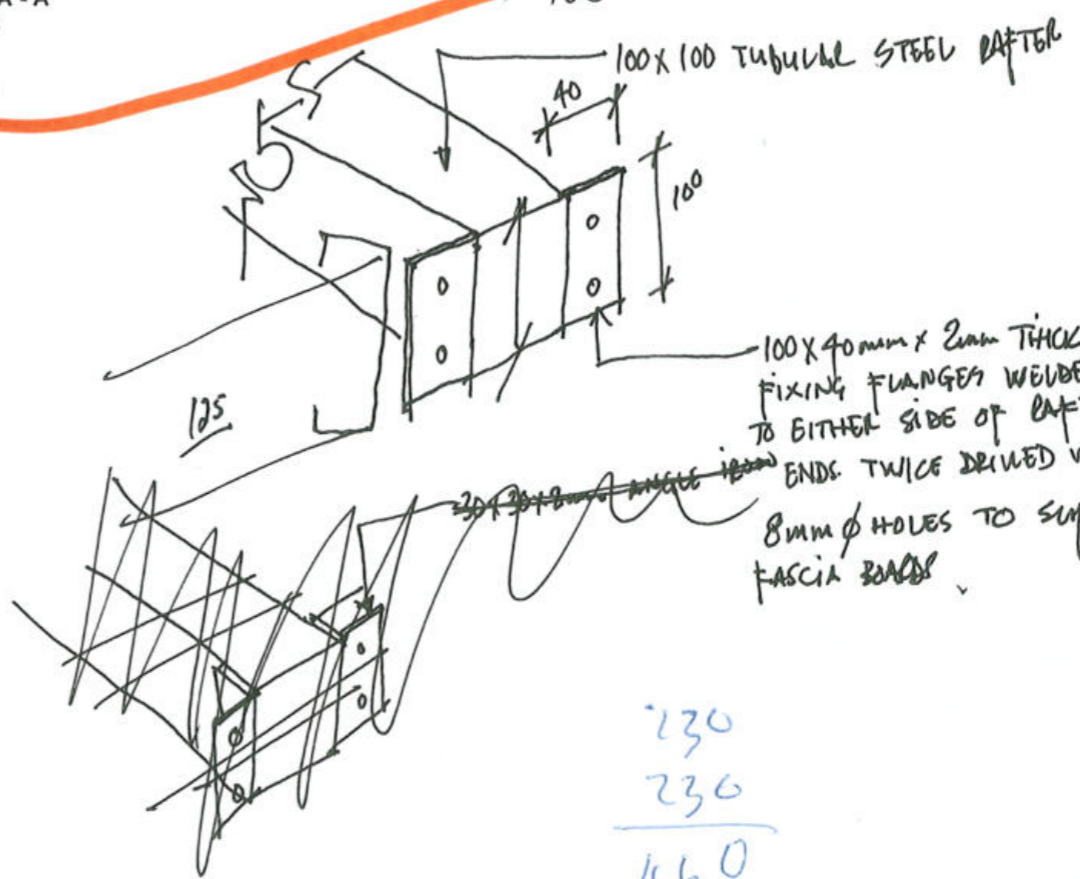 A-A
100 X 100 TUBULAR STEEL RAFTER
40
100
100 X 40mm x 2mm THICK
FIXING FLANGES WELDE
TO EITHER SIDE OF RAF
ENDS TWICE DRILLED W
8mm Ø HOLES TO SUP
FASCIA BOARDS.
125
30 x 30 x 2mm ANGLE IRON
230
230
460